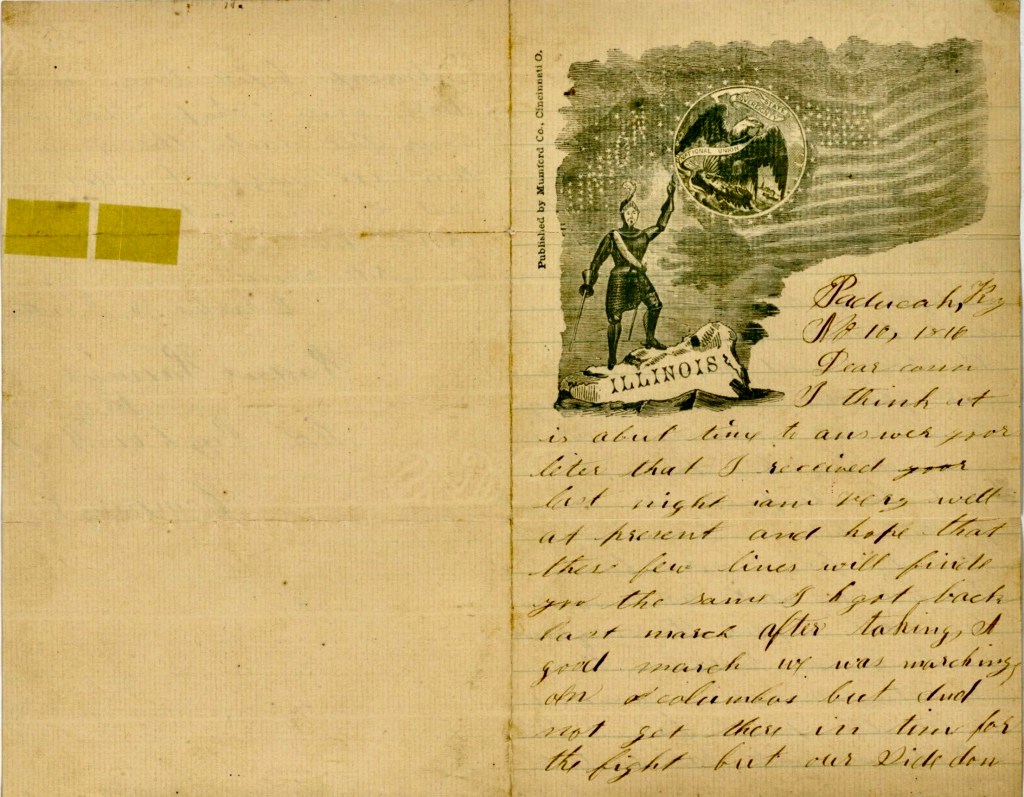 Published by Mumford Co., Cincinnati O.
STATE SOVEREIGNTY
NATIONAL UNION
ILLINOIS
Paducah, Ky
10, 18
Dear
I think it
is abut time to answer your
leter that I received your
last night iam very well
at present and hope that
thes few lines will finde
you the same I got back
last march after taking A
good march we was marching
on columbos but did
not get there in time for
the fight but our Side don